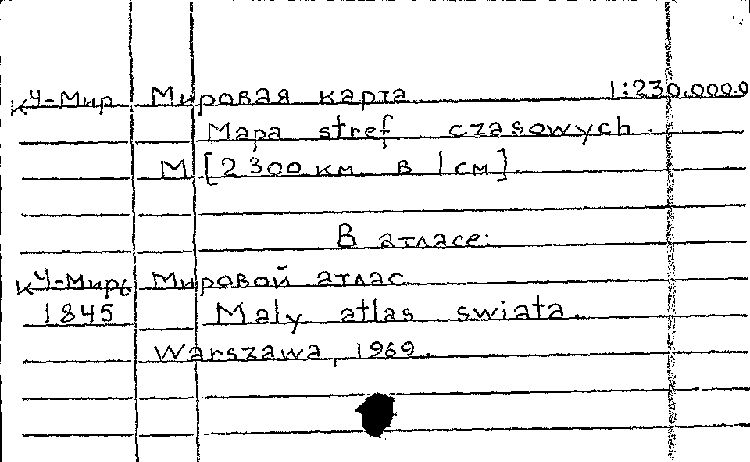 К4-Мир Мировая карта 1:230.000.0
Mapa stref czasowych.
М [2300 км в 1 см]
В атласе:
К4-Мирь Мировой атлас
1845 Maly atlas swiata.
Warszawa, 1969.